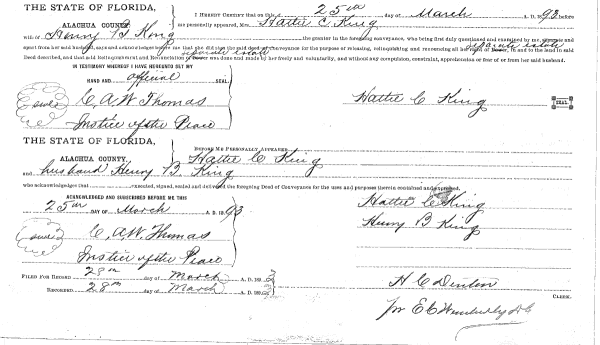 THE STATE OF FLORIDA,
ALACHUA COUNTY.
I HEREBY CERTIFY that on this 25th day of March A. D. 1893 before
me personally appeared, Mrs. Hattie C. King
wife of Henry B King the grantor in the foregoing conveyance, who being first duly questioned and examined by me, separate and
apart from her said husband, says and acknowledges before me that she did the said deed of conveyance for the purpose of releasing, relinquishing and renouncing all her separate estate in and to the land in said
Deed described, and that said relinquishment and Renunciation of separate estate was done and made by her freely and voluntarily, and without any compulsion, constraint, apprehension or fear of or from her said husband.
IN TESTIMONY WHEREOF I HAVE HEREUNTO SET MY
HAND AND official SEAL
Seal C. A. W. Thomas
Justice of the Peace
Hattie C King SEAL
THE STATE OF FLORIDA,
ALACHUA COUNTY.
BEFORE ME PERSONALLY APPEARED Hattie C King
and husband Henry B. King
who acknowledges that executed, signed, sealed and delivered the foregoing Deed of Conveyance for the uses and purposes therein contained and expressed.
ACKNOWLEDGED AND SUBSCRIBED BEFORE ME THIS
25th DAY OF March A. D. 1893
Hattie C King
Henry B King
Seal C. A. W. Thomas
Justice of the Peace
FILED FOR RECORD 28th day of March A. D. 1893
RECORDED 28th day of March A. D. 1893
H C Denton
CLERK.
Pr E C Wimberly D C